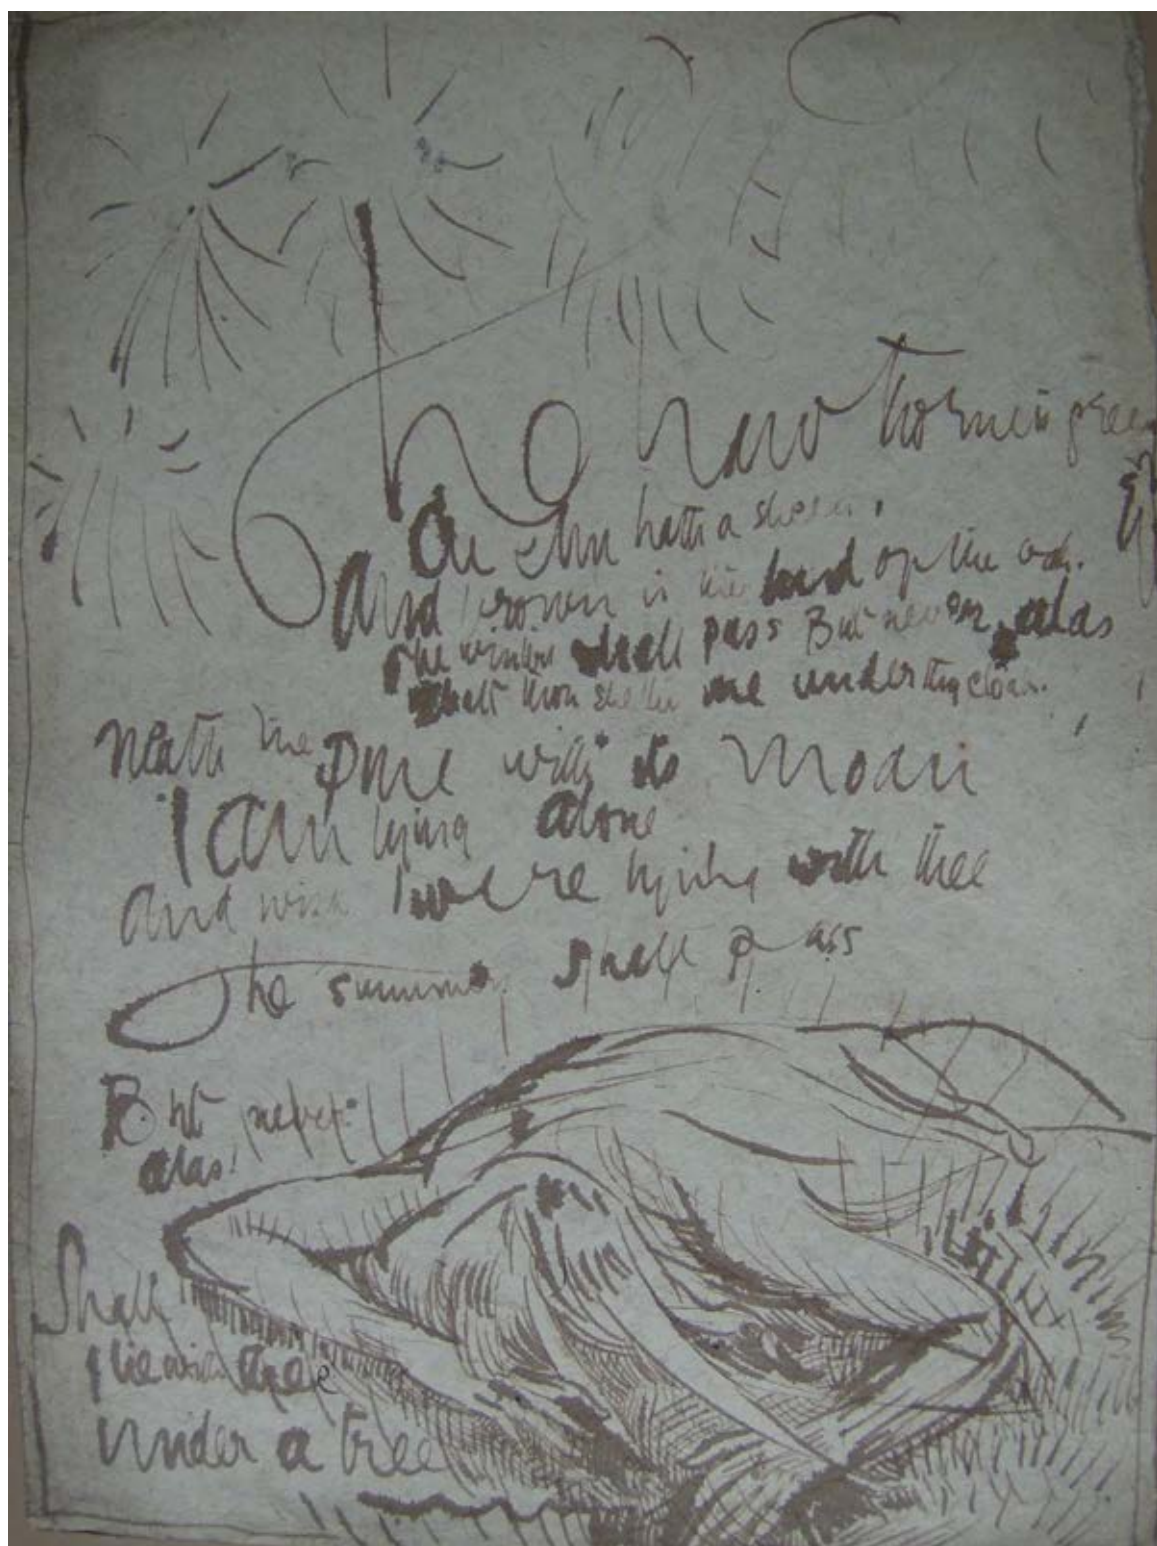 The hawthorn is green
The elm hath a sheen,
And brown is the bud of the oak.
The winter shall pass But never alas
Shalt thou shelter me under thy cloak.
Neath the Pine with its Moan
I am lying alone
And wish I were lying with thee
The summer shall pass
But never
alas!
Shall
I lie with thee
Under a tree